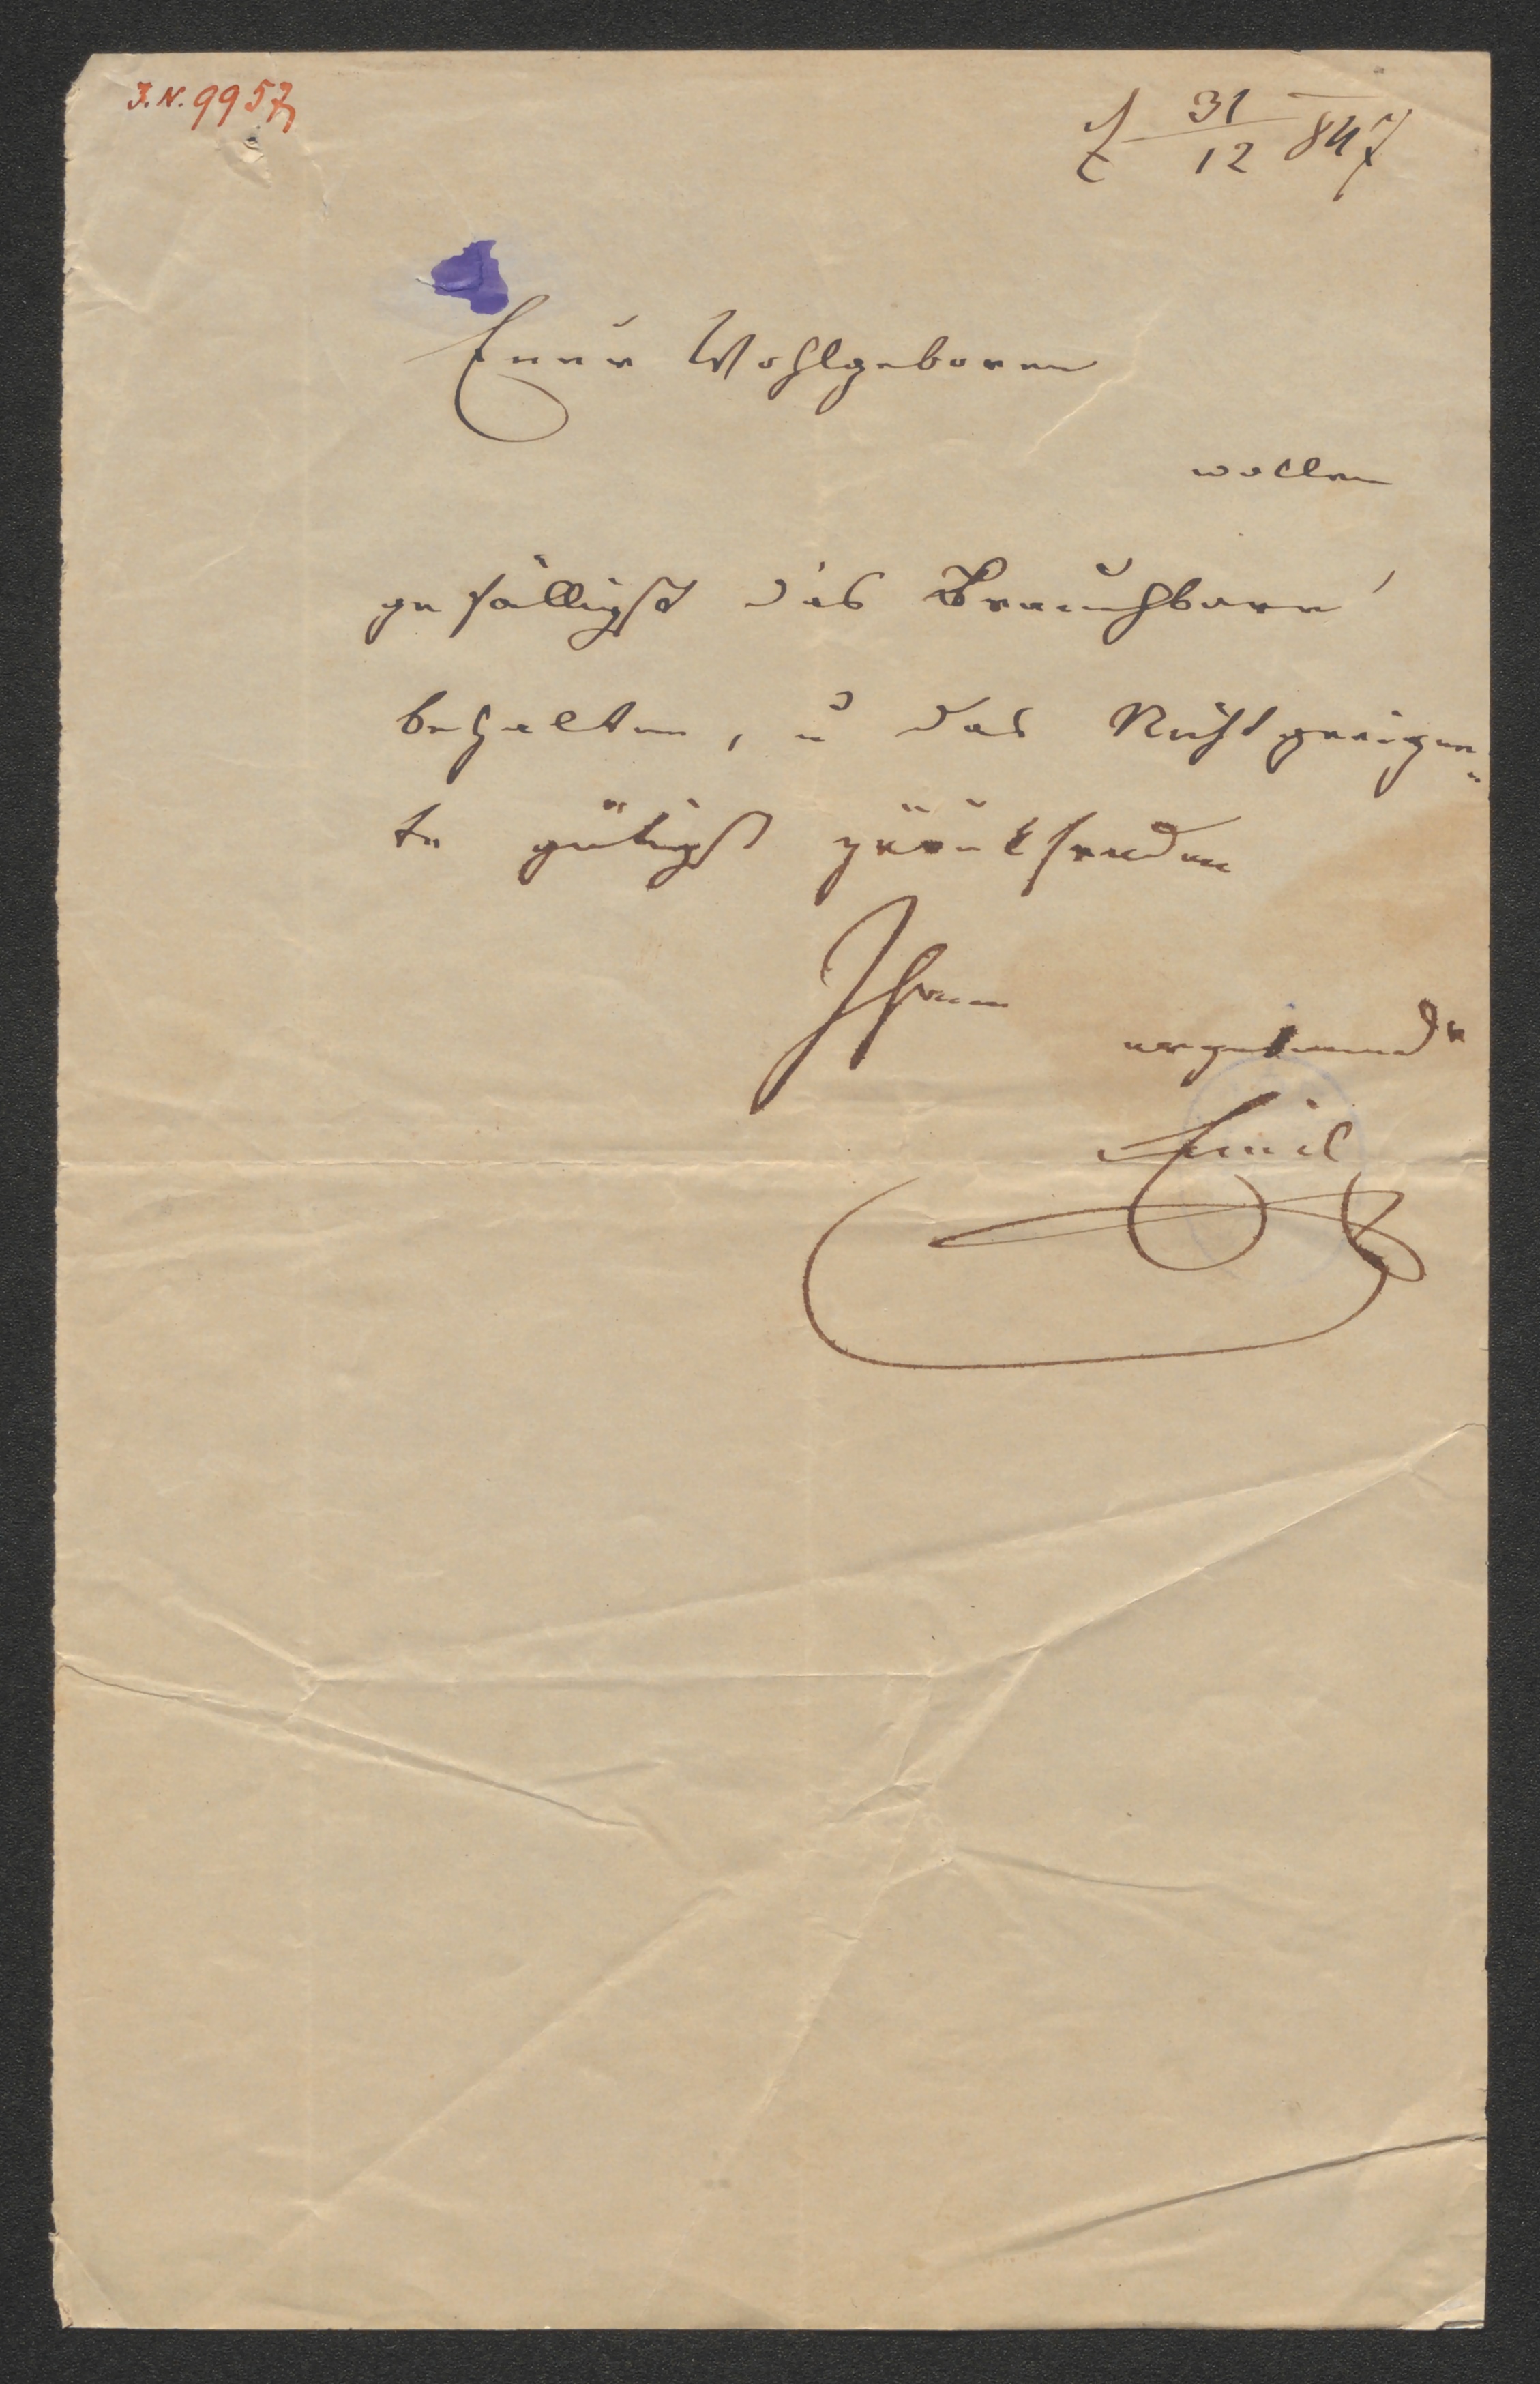 J.N. 9957
31/12 847
Euer Wohlgeboren
wollen
gefälligst das Brauchbare
behalten, u das Nichtgeeigne-
te gütigst zurücksenden
Ihrem
ergebenen
Emil